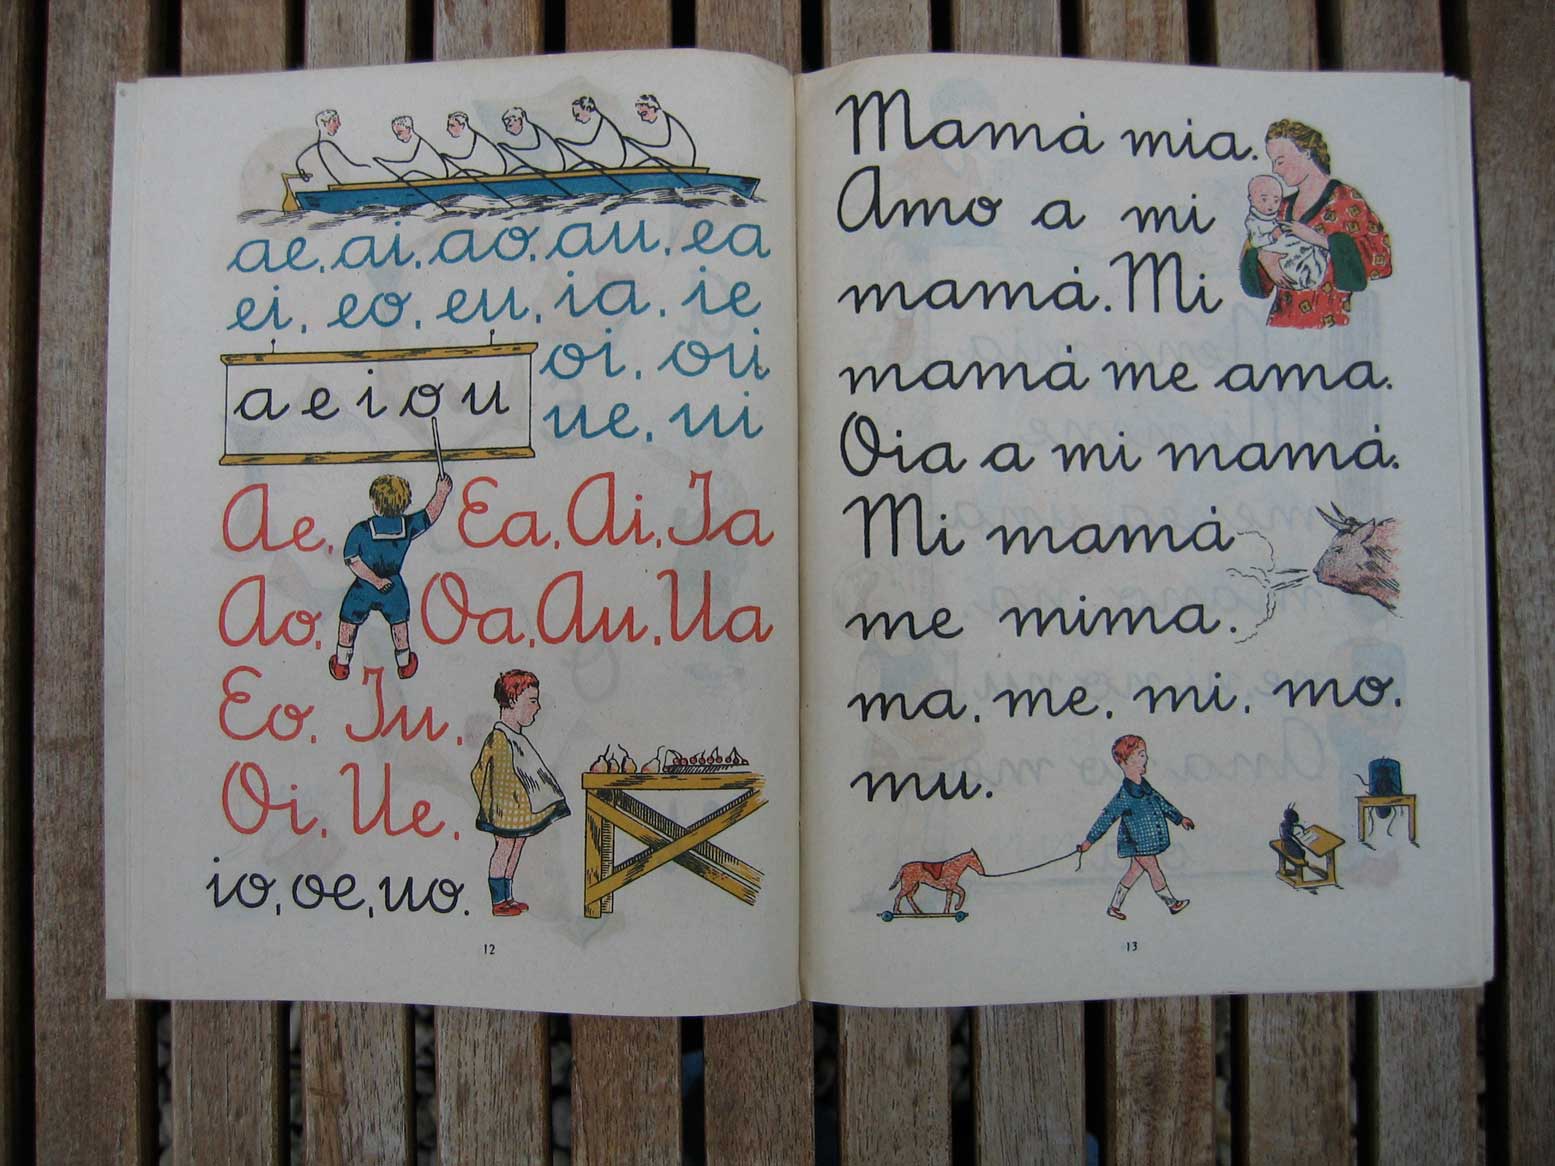 ae, ai, ao, au, ea
ei, eo, eu, ia, ie
oi, ou
a e i o u
ue, ui
Ae, Ea, Ai, Ia
Ao, Oa, Au, Ua
Eo, Iu,
Oi, Ue,
io, oe, uo.
12
Mamá mia.
Amo a mi
mamá. Mi
mamá me ama.
Oia a mi mamá.
Mi mamá
me mima.
ma, me, mi, mo,
mu.
13